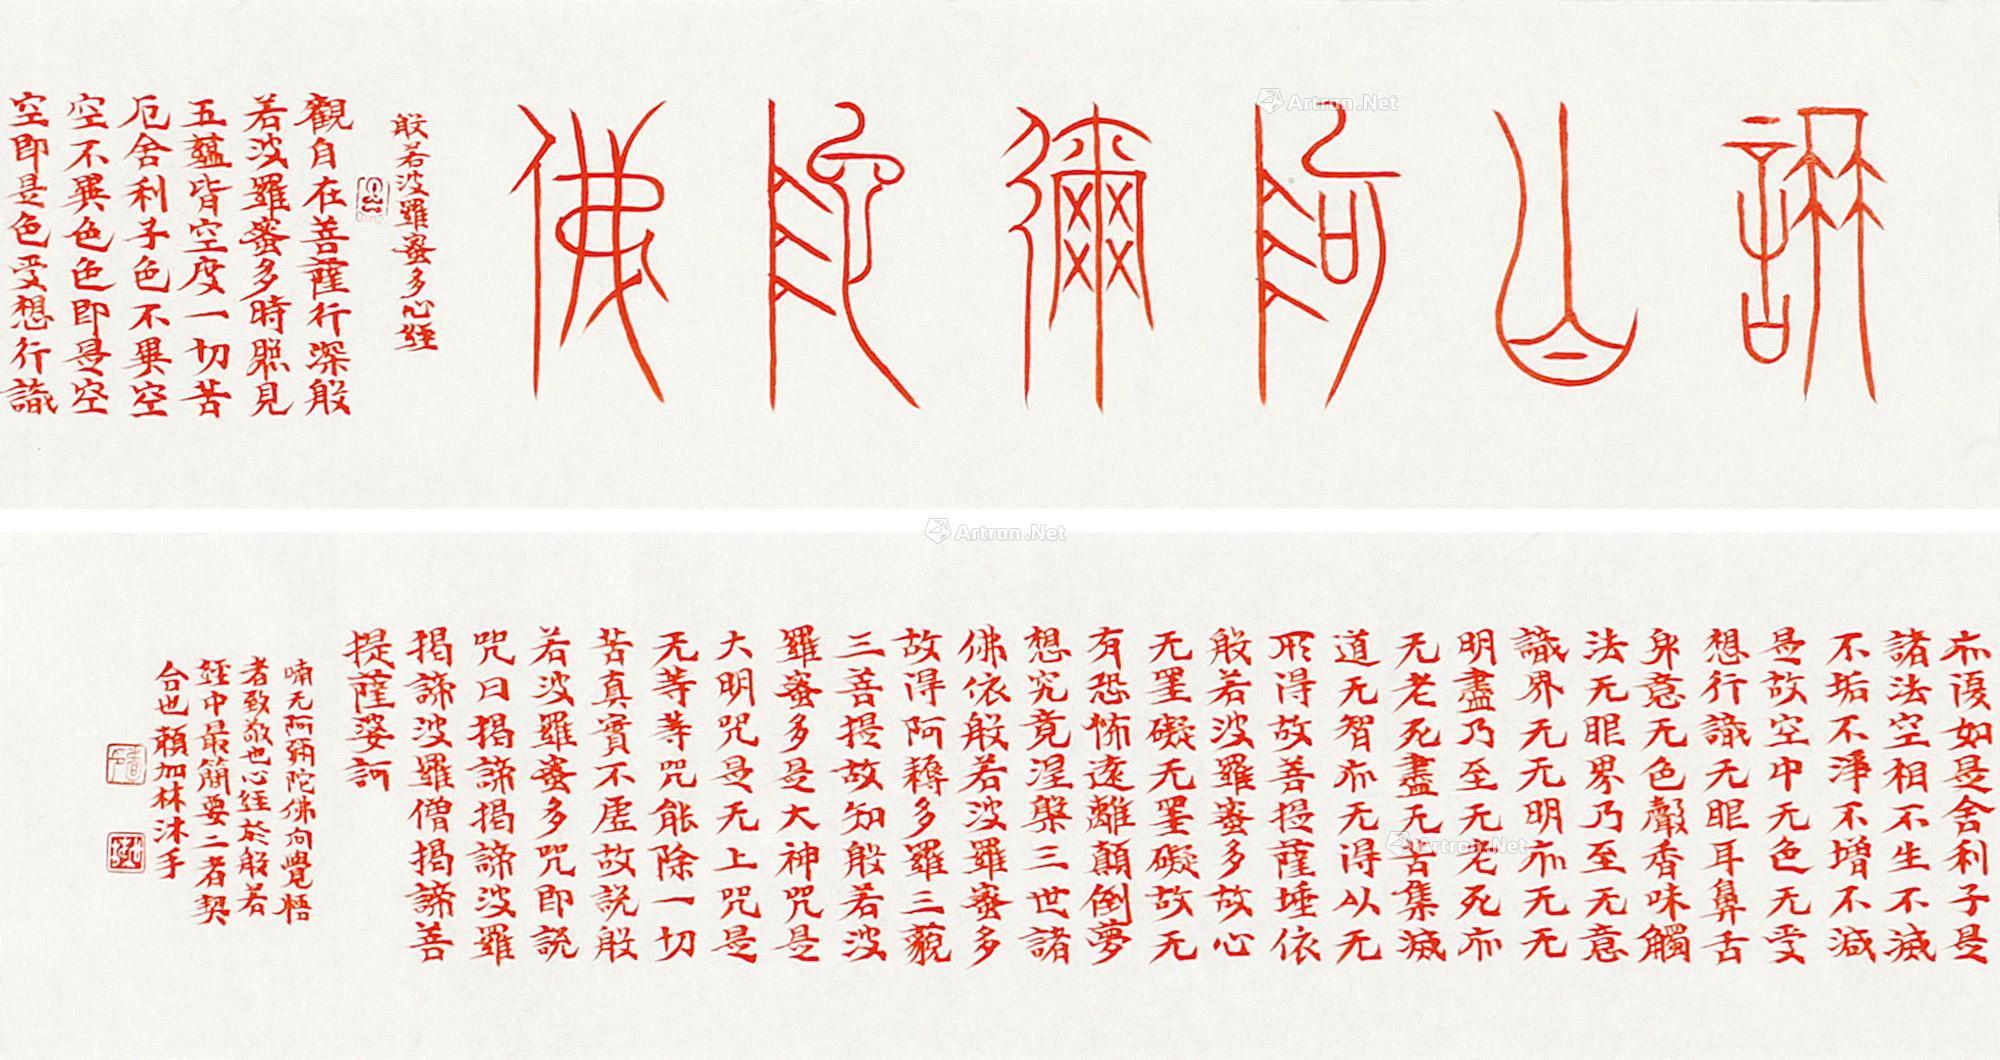 阿彌陀佛
般若波羅蜜多心經
觀自在菩薩行深般
若波羅蜜多時照見
五蘊皆空度一切苦
厄舍利子色不異空
空不異色色即是空
空即是色受想行識
亦復如是舍利子是
諸法空相不生不滅
不垢不淨不增不減
是故空中无色无受
想行識无眼耳鼻舌
身意无色聲香味觸
法无眼界乃至无意
識界无无明亦无无
明盡乃至无老死亦
无老死盡无苦集滅
道无智亦无得以无
所得故菩提薩埵依
般若波羅蜜多故心
无罣礙无罣礙故无
有恐怖遠離顛倒夢
想究竟涅槃三世諸
佛依般若波羅蜜多
故得阿耨多羅三藐
三菩提故知般若波
羅蜜多是大神咒是
大明咒是无上咒是
无等等咒能除一切
苦真實不虛故説般
若波羅蜜多咒即説
咒曰揭諦揭諦波羅
揭諦波羅僧揭諦菩
提薩婆訶
喃无阿彌陀佛向覺悟
者致敬也心經於般若
經中最簡要二者契
合也賴加林沐手
Artron.Net
Artron.Net
Artron.Net
Artron.Net